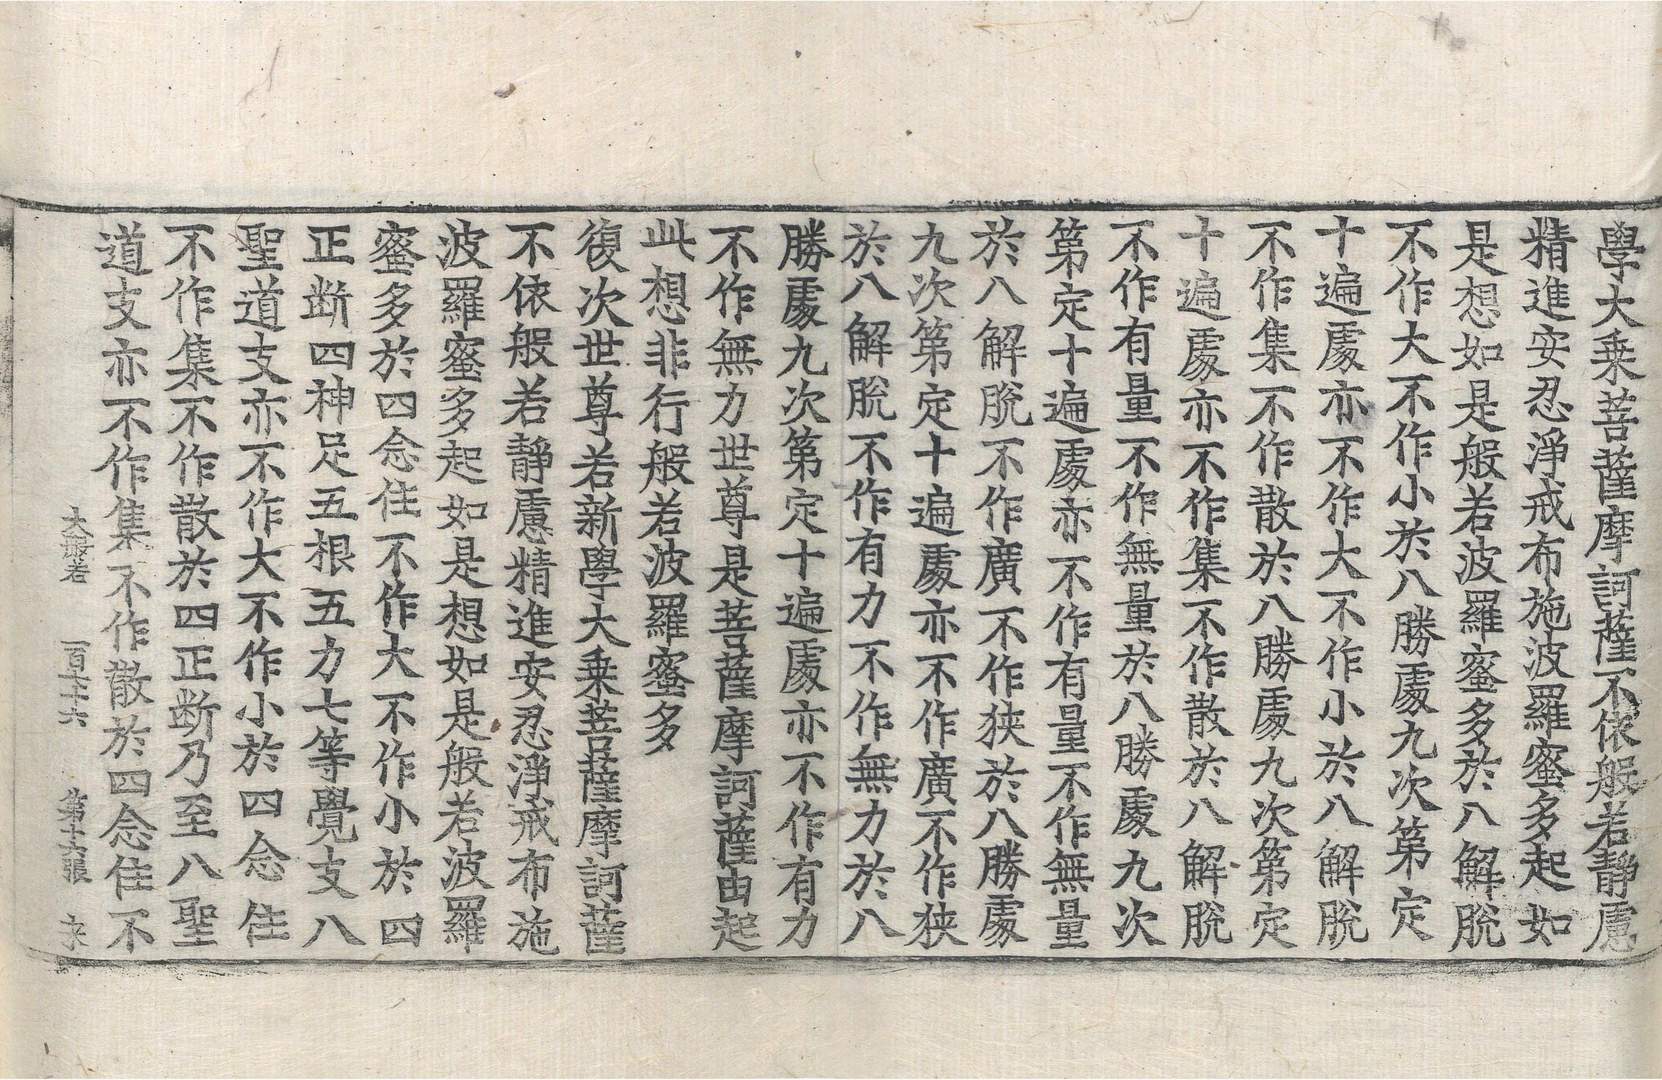 學大乘菩薩摩訶薩不依般若靜慮
精進安忍淨戒布施波羅蜜多起如
是想如是般若波羅蜜多於八解脫
不作大不作小於八勝處九次第定
十遍處亦不作大不作小於八解脫
不作集不作散於八勝處九次第定
十遍處亦不作集不作散於八解脫
不作有量不作無量於八勝處九次
第定十遍處亦不作有量不作無量
於八解脫不作廣不作狹於八勝處
九次第定十遍處亦不作廣不作狹
於八解脫不作有力不作無力於八
勝處九次第定十遍處亦不作有力
不作無力世尊是菩薩摩訶薩由起
此想非行般若波羅蜜多
復次世尊若新學大乘菩薩摩訶薩
不依般若靜慮精進安忍淨戒布施
波羅蜜多起如是想如是般若波羅
蜜多於四念住不作大不作小於四
正斷四神足五根五力七等覺支八
聖道支亦不作大不作小於四念住
不作集不作散於四正斷乃至八聖
道支亦不作集不作散於四念住不
大般若 百七十六 第十六張